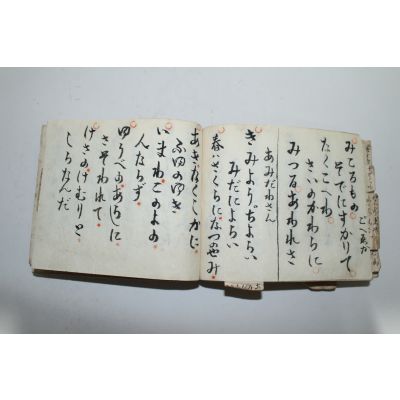 みてるもの
そでにすかりて
なくこへわ
さいのかわらに
みつるあわれさ
あみだわさん
きみより。ちよらい
みだによらい
春ハさくらになつのせみ
あきなくしかに
ふゆのゆき
いまわこのよの
人ならず
ゆうべのあらしに
さそわれて
けさのけむりと
しらなんだ